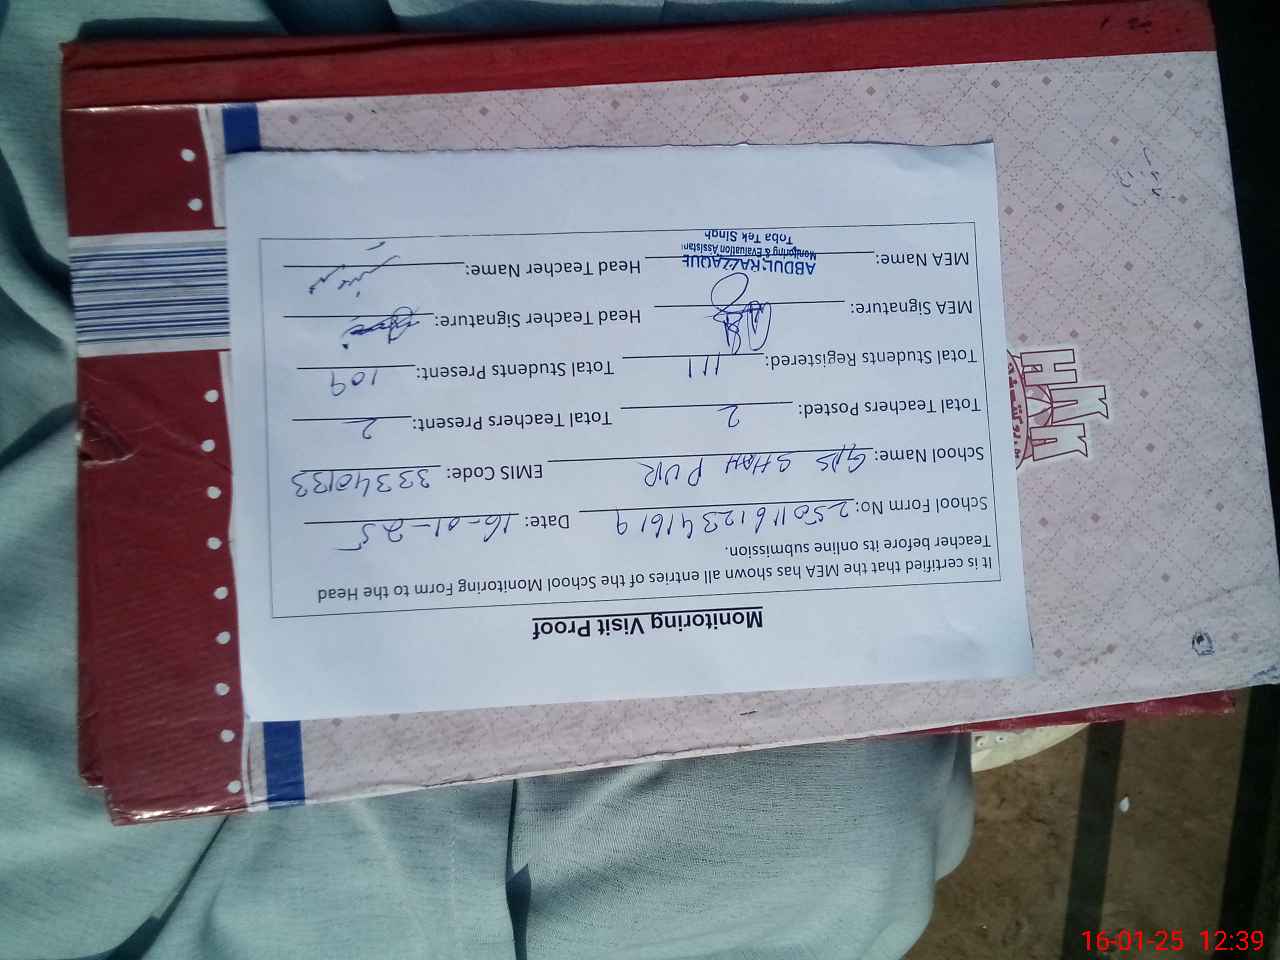 Monitoring Visit Proof
It is certified that the MEA has shown all entries of the School Monitoring Form to the Head
Teacher before its online submission.
School Form No: 25011612341619 Date: 16-01-25
School Name: G/S SHAH PUR EMIS Code: 33340133
Total Teachers Posted: 2 Total Teachers Present: 2
Total Students Registered: 111 Total Students Present: 109
MEA Signature: Head Teacher Signature:
MEA Name: ABDUL RAZZAQUE Head Teacher Name:
Monitoring & Evaluation Assistant
Toba Tek Singh
16-01-25 12:39